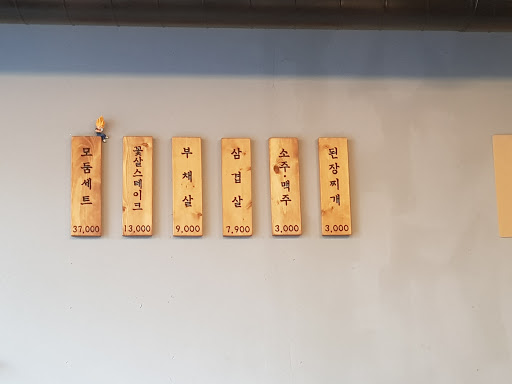 모둠세트
37,000
꽃살스테이크
13,000
부채살
9,000
삼겹살
7,900
소주·맥주
3,000
된장찌개
3,000